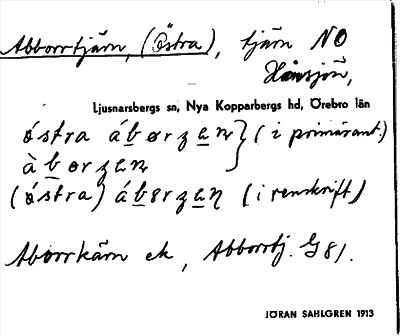 Abborrtjärn, (Östra), tjärn NO
Hånsjön,
Ljusnarsbergs sn, Nya Kopparbergs hd, Örebro län
östra áborzan } (i primärant.)
àborzan
(östra) áborzan (i renskrift)
Aborrkärn ek, Abborrtj. G 81.
JÖRAN SAHLGREN 1913